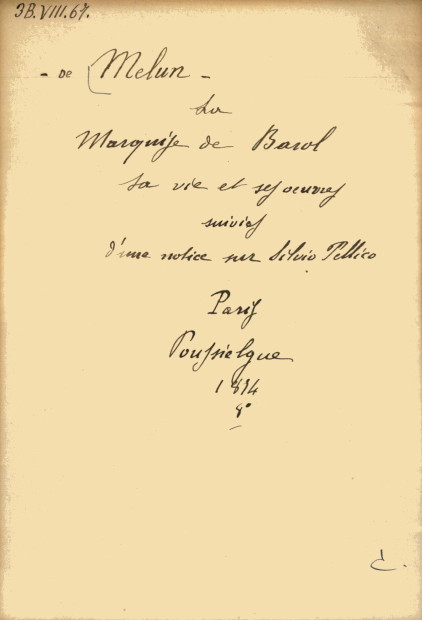 3B.VIII.67.
- DE (Melun -
La
Marquise de Barol
sa vie et ses oeuvres
suivies
d'une notice sur Silvio Pellico
Paris
Poussielgue
8°
C.